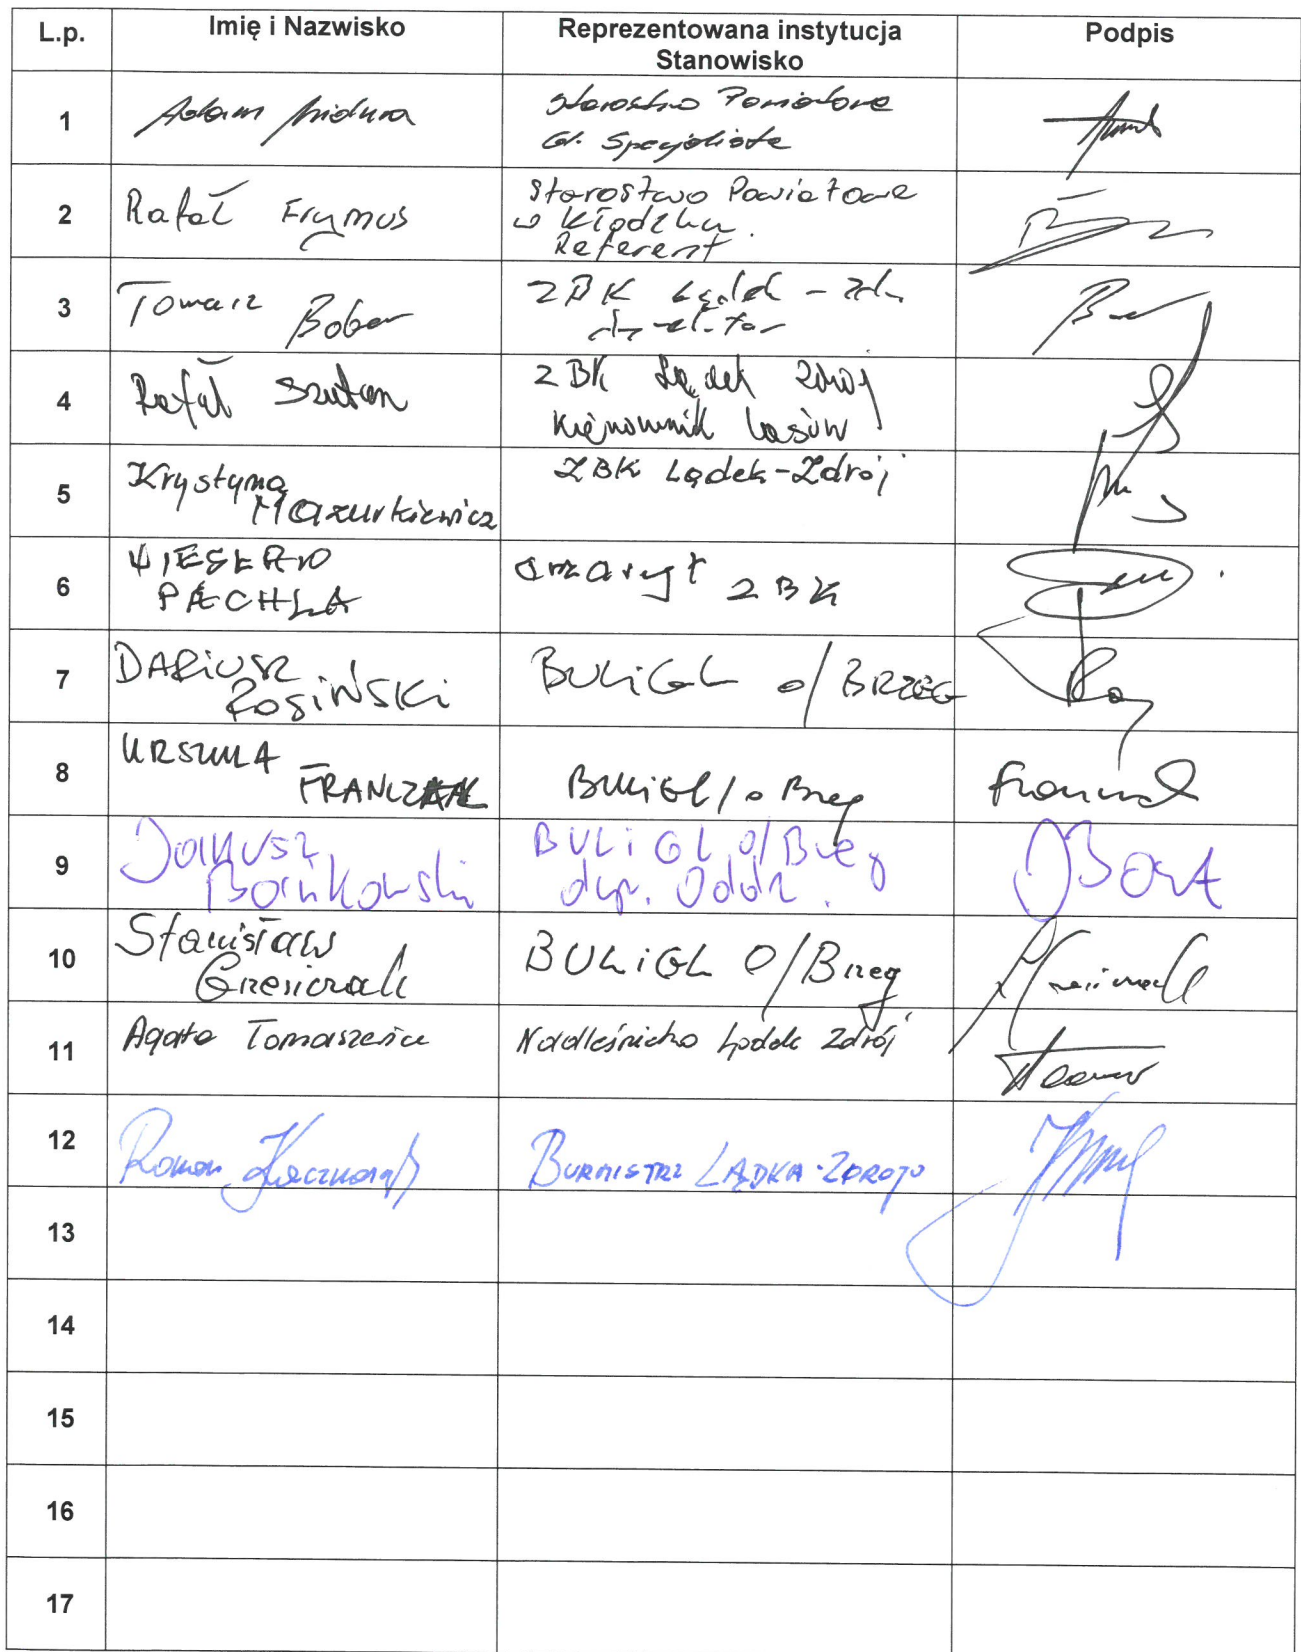 L.p. Imię i Nazwisko Reprezentowana instytucja Stanowisko Podpis
1 Adam Midura Starostwo Powiatowe
Gł. Specjalista
2 Rafał Frymus Starostwo Powiatowe
w Kłodzku
Referent
3 Tomasz Bober ZBK Lądek - Zdr.
dyrektor
4 Rafał Szutan ZBK Lądek Zdrój
Kierownik lasów
5 Krystyna
Mazurkiewicz ZBK Lądek-Zdrój
6 WIESŁAW
PACHLA ZBK
7 DARIUSZ
ROSIŃSKI BULiGL o/BRZEG
8 URSZULA
FRANCZAK BULiGL/o Brzeg
9 Janusz
Bańkowski BULiGL O/Brzeg
dyr. Oddz.
10 Stanisław
Grzesiczak BULiGL O/Brzeg
11 Agata Nadleśnictwo Lądek Zdrój
12 Roman Kaczmarczyk BURMISTRZ LĄDKA-ZDROJU
13
14
15
16
17